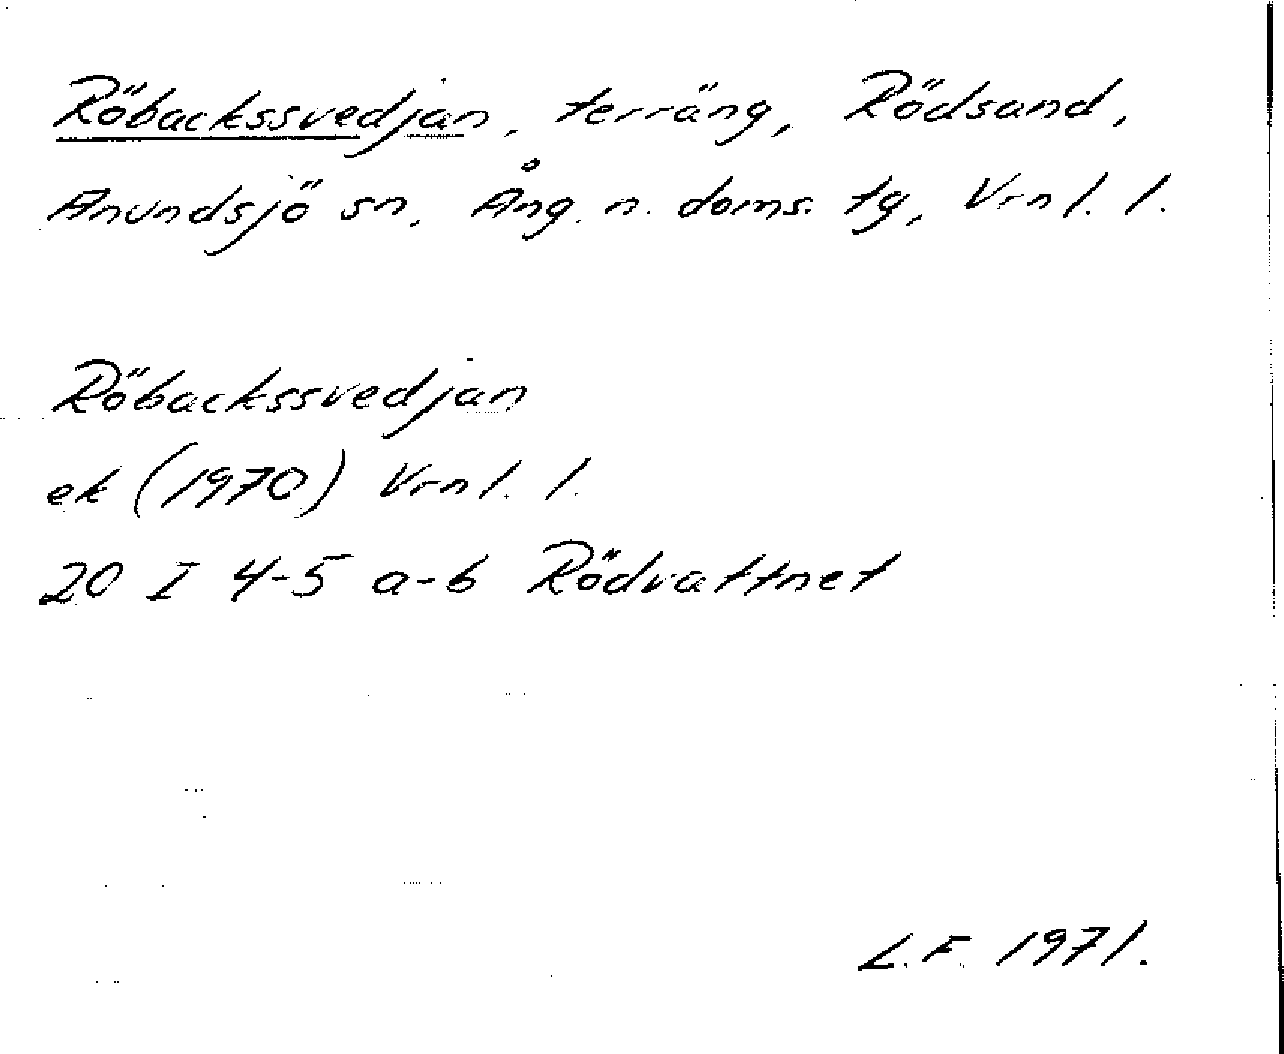 Röbackssvedjan, terräng, Rödsand,
Anundsjö sn, Ång. n. doms. tg, Vrnl. l.
Röbackssvedjan
ek (1970) Vrnl. l.
20 I 4-5 a-b Rödvattnet
L.F. 1971.